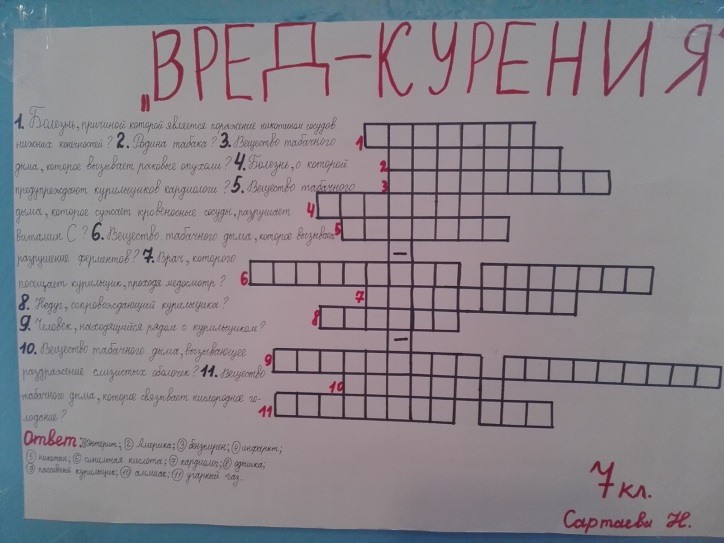 „ВРЕД-КУРЕНИЯ"
1. Болезнь, причиной которой является поражение никотином сосудов
нижних конечностей? 2. Родина табака? 3. Вещество табачного
дыма, которое вызывает раковые опухоли? 4. Болезнь, о которой
предупреждают курильщиков кардиологи? 5. Вещество табачного
дыма, которое сужает кровеносные сосуды, разрушает
витамин С? 6. Вещество табачного дыма, которое вызывает
разрушение ферментов? 7. Врач, которого
посещает курильщик, проходя медосмотр?
8. Недуг, сопровождающий курильщика?
9. Человек, находящийся рядом с курильщиком?
10. Вещество табачного дыма, вызывающее
раздражение слизистых оболочек? 11. Вещество
табачного дыма, которое связывает кислородное го-
лодание?
1
2
3
4
5
–
6
7
8
–
9
10
11
Ответ: ② Америка; ③ бензпирен; ④ инфаркт;
⑤ никотин; ⑥ синильная кислота; ⑦ кардиолог; ⑧ одышка;
⑨ пассивный курильщик; ⑩ аммиак; ⑪ угарный газ.
7 кл.
Сартаева Н.